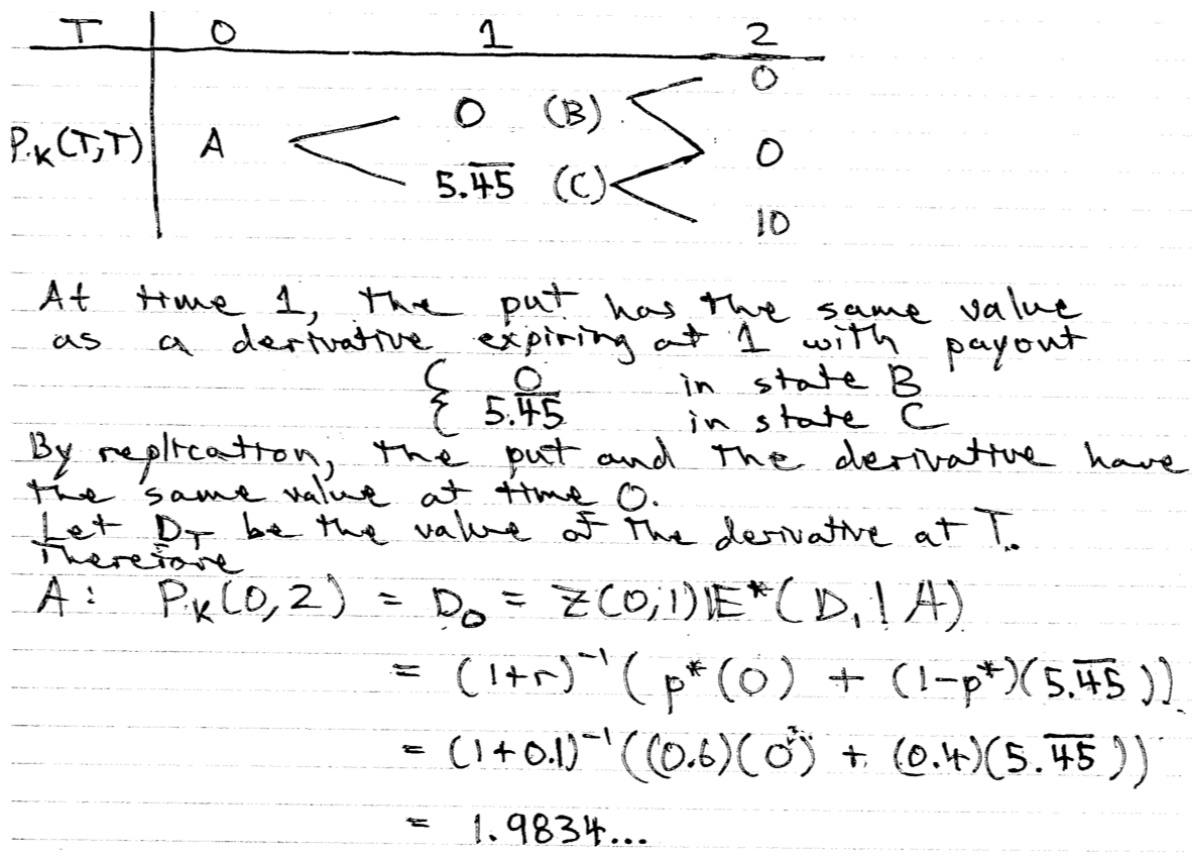 T 0 1 2
0
0 (B)
P_K(T,T) A 0
5.4̅5̅ (C)
10
At time 1, the put has the same value
as a derivative expiring at 1 with payout
{ 0 in state B
5.4̅5̅ in state C
By replication, the put and the derivative have
the same value at time 0.
Let D_T be the value of the derivative at T.
Therefore
A: P_K(0,2) = D_0 = Z(0,1)E*(D_1 | A)
= (1+r)^-1 (p*(0) + (1-p*)(5.4̅5̅))
= (1+0.1)^-1 ((0.6)(0) + (0.4)(5.4̅5̅))
= 1.9834...